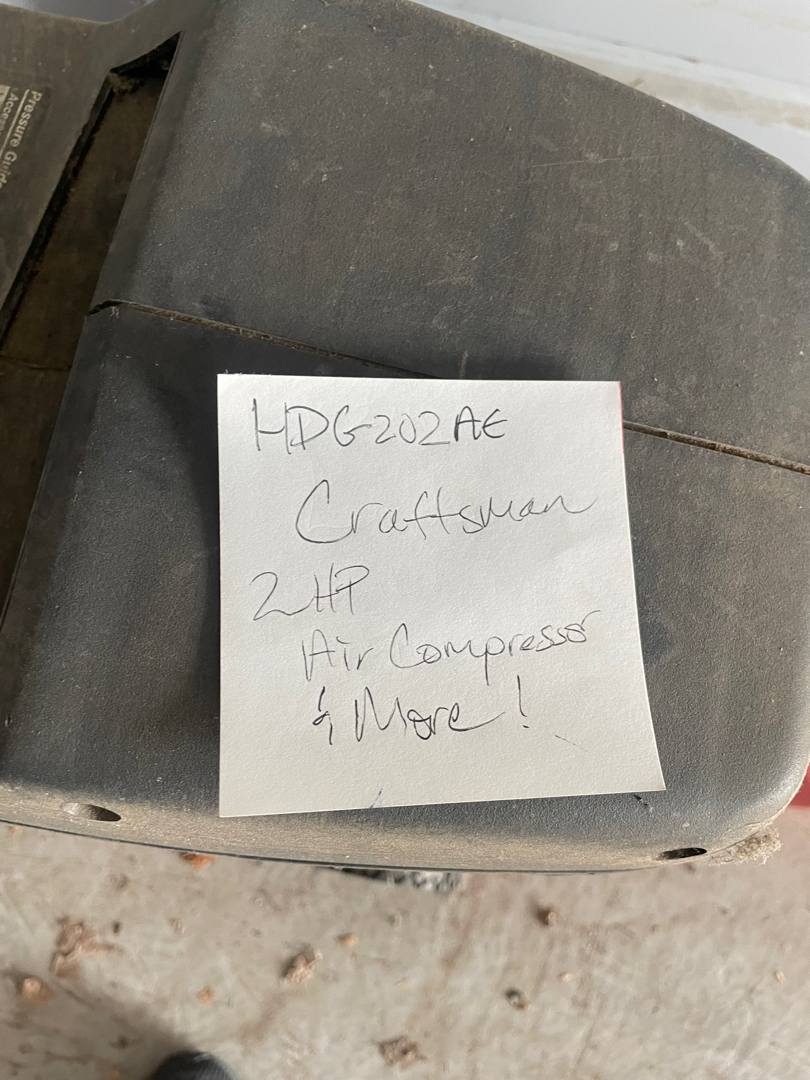 Pressure Guide
HDG202AE
Craftsman
2HP
Air Compressor
& More!